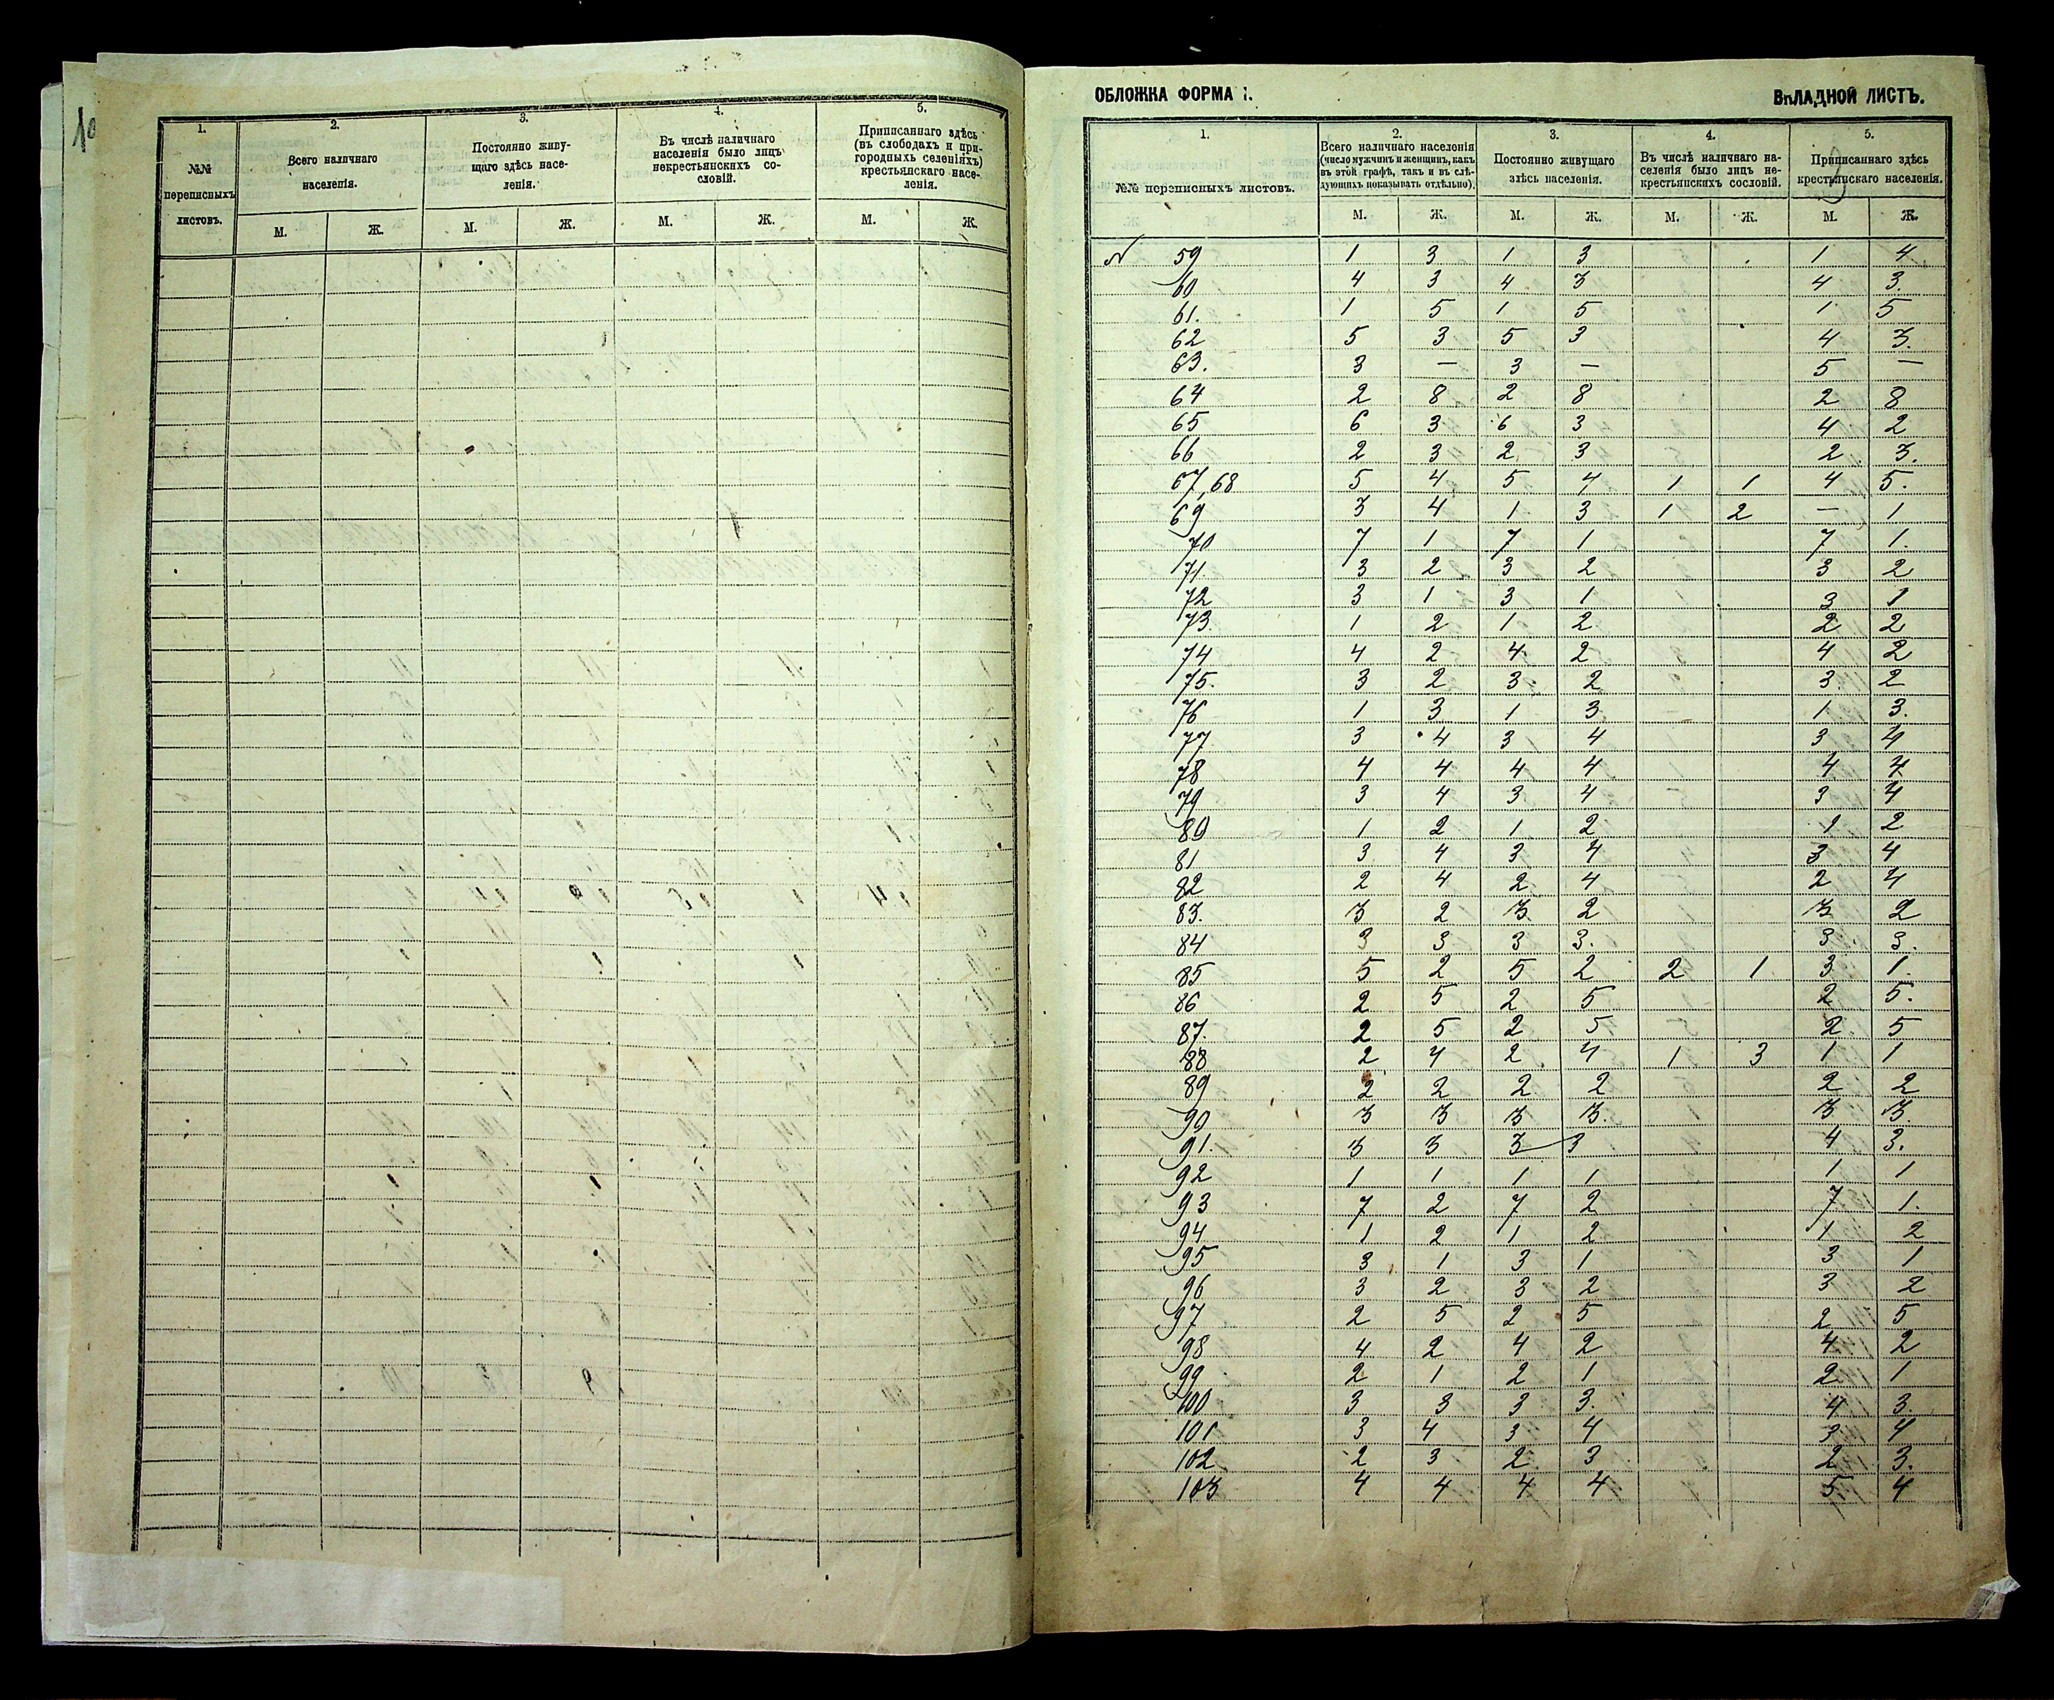 1. 2. 3. 4. 5.
№№ переписныхъ листовъ. Всего наличнаго населенія. Постоянно живущаго здѣсь населенія. Въ числѣ наличнаго населенія было лицъ некрестьянскихъ сословій. Приписаннаго здѣсь (въ слободахъ и пригородныхъ селеніяхъ) крестьянскаго населенія.
М. Ж. М. Ж. М. Ж. М. Ж.
ОБЛОЖКА ФОРМА 1. ВКЛАДНОЙ ЛИСТЪ.
1. 2. 3. 4. 5.
№№ переписныхъ листовъ. Всего наличнаго населенія (число мужчинъ и женщинъ, какъ въ этой графѣ, такъ и въ слѣдующихъ показывать отдѣльно). Постоянно живущаго здѣсь населенія. Въ числѣ наличнаго населенія было лицъ некрестьянскихъ сословій. Приписаннаго здѣсь крестьянскаго населенія.
М. Ж. М. Ж. М. Ж. М. Ж.
№ 59 1 3 1 3 1 4
60 4 3 4 3 4 3.
61. 1 5 1 5 1 5
62 5 3 5 3 4 3.
63. 3 — 3 — 5 —
64 2 8 2 8 2 8
65 6 3 6 3 4 2
66 2 3 2 3 2 3.
67,68 5 4 5 4 1 1 4 5.
69 3 4 1 3 1 2 — 1
70 7 1 7 1 7 1.
71 3 2 3 2 3 2
72 3 1 3 1 3 1
73. 1 2 1 2 2 2
74 4 2 4 2 4 2
75. 3 2 3 2 3 2
76 1 3 1 3 1 3.
77 3 4 3 4 3 4
78 4 4 4 4 4 4
79 3 4 3 4 3 4
80 1 2 1 2 1 2
81 3 4 3 4 3 4
82 2 4 2 4 2 4
83. 3 2 3 2 3 2
84 3 3 3 3. 3 3.
85 5 2 5 2 2 1 3 1.
86 2 5 2 5 2 5.
87. 2 5 2 5 2 5
88 2 4 2 4 1 3 1 1
89 2 2 2 2 2 2
90 3 3 3 3. 3 3.
91. 3 3 3 3 4 3.
92 1 1 1 1 1 1
93 7 2 7 2 7 1.
94 1 2 1 2 1 2
95 3 1 3 1 3 1
96 3 2 3 2 3 2
97 2 5 2 5 2 5
98 4 2 4 2 4 2
99 2 1 2 1 2 1
100 3 3 3 3. 4 3.
101 3 4 3 4 3 4
102 2 3 2 3 2 3.
103 4 4 4 4 5 4